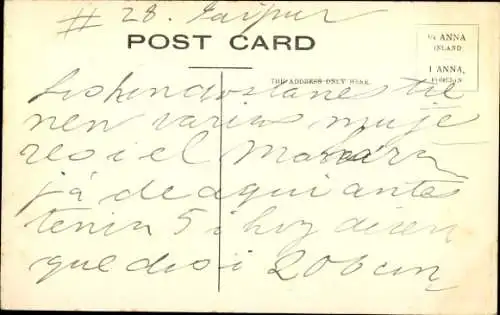 # 28. Jaipur
POST CARD
½ ANNA
INLAND
1 ANNA,
FOREIGN
THE ADDRESS ONLY HERE.
Los hindostanes tie
nen varias muje
res i el Mahara
já de aqui antes
tenia 5 i hoy dicen
que dos i 206 con